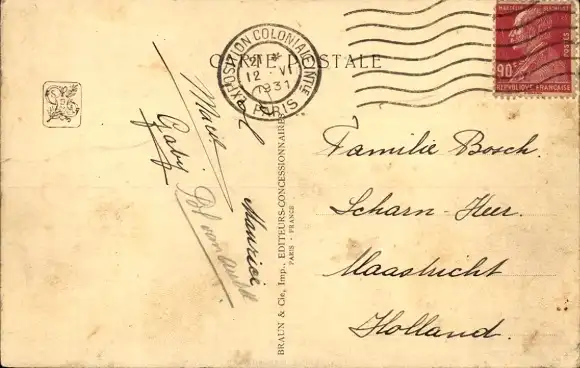 CARTE POSTALE
EXPOSITION COLONIALE INTLE
12 VI
1931
PARIS
MARCELIN BERTHELOT
POSTES
90c
REPUBLIQUE FRANCAISE
Gaby
Maurice
BRAUN & Cie, Imp., EDITEURS-CONCESSIONNAIRES
PARIS - FRANCE
Familie Bosch.
Scharn-Heer.
Maastricht
Holland.